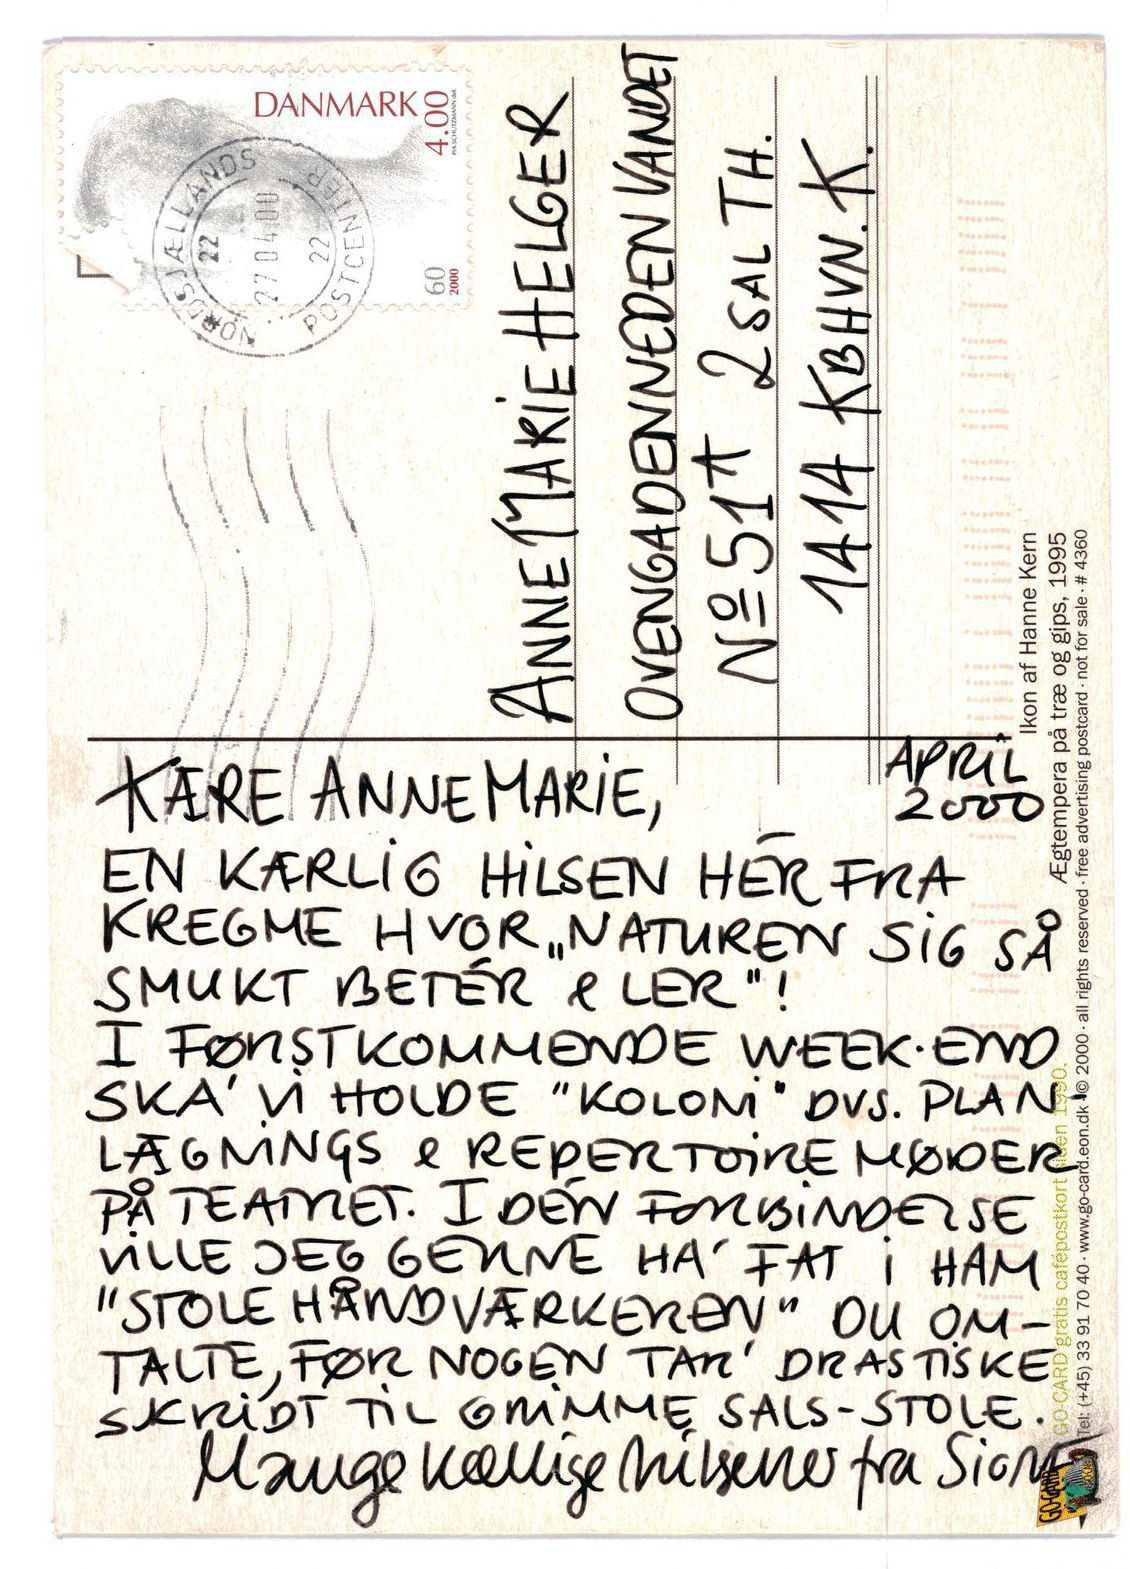 DANMARK 4.00
PIA SCHUTZMANN del.
60
2000
NORDSJÆLLANDS POSTCENTER
22 27.04.00 22
ANNE MARIE HELGER
OVENGADENNEDEN VANDET
Nº 51A 2 SAL TH.
1414 KBHVN. K.
APRIL
2000
KÆRE ANNEMARIE,
EN KÆRLIG HILSEN HÉR FRA
KREGME HVOR „NATUREN SIG SÅ
SMUKT BETÉR & LER"!
I FØRSTKOMMENDE WEEK-END
SKA' VI HOLDE "KOLONI" DVS. PLAN-
LÆGNINGS & REPERTOIRE MØDER
PÅ TEATRET. I DÉN FORBINDELSE
VILLE JEG GERNE HA' FAT I HAM
"STOLE HÅNDVÆRKEREN" DU OM-
TALTE, FØR NOGEN TAR' DRASTISKE
SKRIDT TIL GRIMME SALS-STOLE.
Mange kærlige hilsener fra
Ikon af Hanne Kern
Ægtempera på træ og gips, 1995
GO-CARD gratis cafépostkort siden 1990.
Tel: (+45) 33 91 70 40 · www.go-card.eon.dk · © 2000 · all rights reserved · free advertising postcard · not for sale · # 4360
GO-CARD